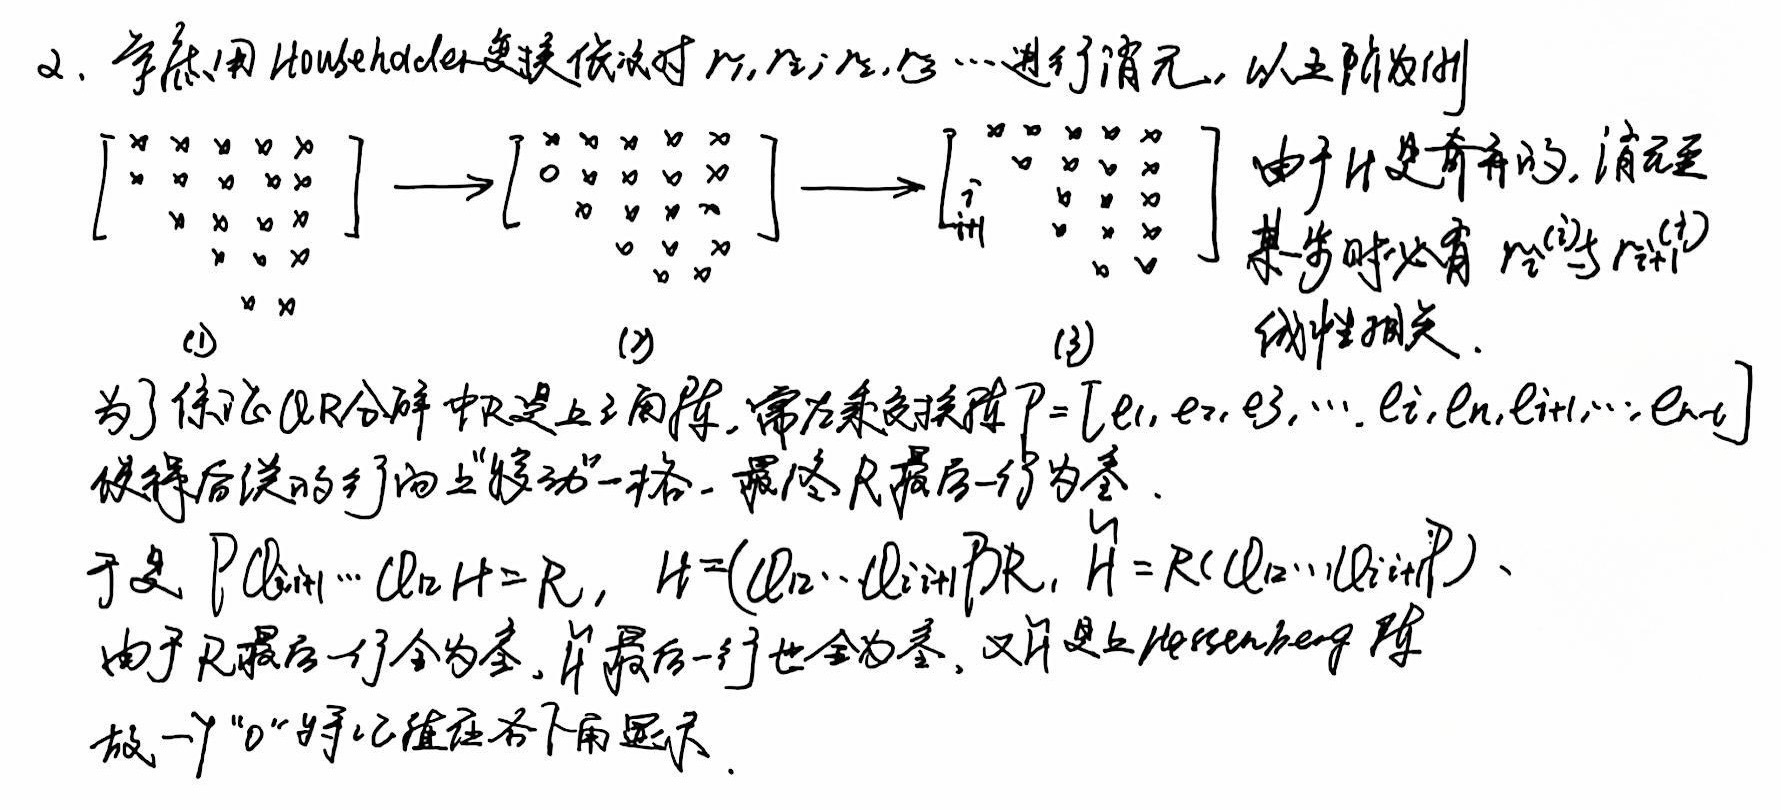 2. 考虑用 Householder 变换依次对 r₁, r₂; r₂, r₃ … 进行消元, 以五阶为例
[ × × × × × ] → [ × × × × × ] → [ × × × × × ]
× × × × × 0 × × × × × × × ×
× × × × × × × × i × × ×
× × × × × × i+1 × × ×
× × × × × ×
(1) (2) (3)
由于 H 是奇异的, 消元至
某一步时必有 r_i^(i) 与 r_{i+1}^(i)
线性相关.
为了保证QR分解中R是上三角阵, 需左乘交换阵 P = [e₁, e₂, e₃, …, e_i, e_n, e_{i+1}, …, e_{n-1}]
使得后续的行向上"移动"一格, 最终 R 最后一行为零.
于是 P Q_{i,i+1} … Q₁₂ H = R, H = (Q₁₂ … Q_{i,i+1} P) R, H̃ = R (Q₁₂ … Q_{i,i+1} P).
由于 R 最后一行全为零, H̃ 最后一行也全为零, 又 H̃ 是上 Hessenberg 阵
故一个 "0" 特征值在右下角显示.